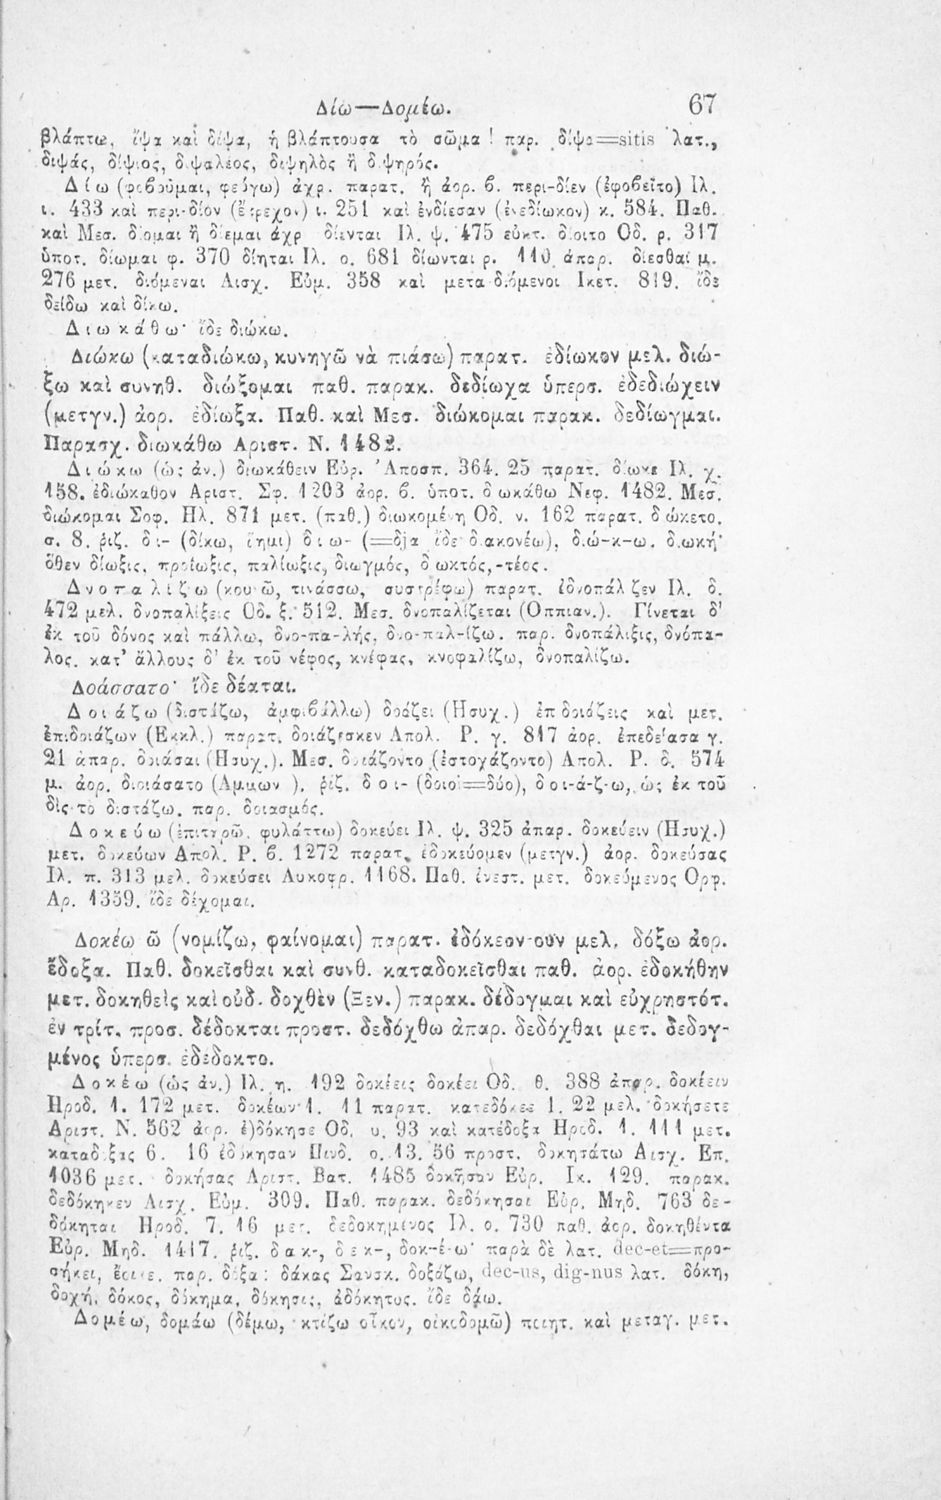 Δίω—Δομέω. 67
βλάπτω, ἴψα καὶ δίψα, ἡ βλάπτουσα τὸ σῶμα! παρ. δίψα=sitis λατ.,
διψάς, δίψιος, διψαλέος, διψηλὸς ἢ διψηρός.
Δίω (φοβοῦμαι, φεύγω) ἄχρ. παρατ. ἢ ἀορ. β. περι-δίεν (ἐφοβεῖτο) Ιλ.
ι. 433 καὶ περι-δίον (ἔτρεχον) ι. 251 καὶ ἐνδίεσαν (ἐνεδίωκον) κ. 584. Παθ.
καὶ Μεσ. δίομαι ἢ δίεμαι ἄχρ δίενται Ιλ. ψ. 475 εὐκτ. δίοιτο Οδ. ρ. 317
ὑποτ. δίωμαι φ. 370 δίηται Ιλ. ο. 681 δίωνται ρ. 110. ἀπαρ. δίεσθαι μ.
276 μετ. διόμεναι Αισχ. Εὐμ. 358 καὶ μετα διόμενοι Ικετ. 819. ἴδε
δείδω καὶ δίκω.
Διωκάθω· ἴδε διώκω.
Διώκω (καταδιώκω, κυνηγῶ νὰ πιάσω) παρατ. ἐδίωκον μελ. διώ-
ξω καὶ συνηθ. διώξομαι παθ. παρακ. δεδίωχα ὑπερσ. ἐδεδιώχειν
(μετγν.) ἀορ. ἐδίωξα. Παθ. καὶ Μεσ. διώκομαι παρακ. δεδίωγμαι.
Παρασχ. διωκάθω Αριστ. Ν. 1482.
Διώκω (ὡς ἀν.) διωκάθειν Εὐρ. Ἀποσπ. 364. 25 παρατ. δίωκε Ιλ. χ.
158. ἐδιώκαθον Αριστ. Σφ. 1203 ἀορ. β. ὑποτ. διωκάθω Νεφ. 1482. Μεσ.
διώκομαι Σοφ. Ηλ. 871 μετ. (παθ.) διωκομένη Οδ. ν. 162 παρατ. διώκετο.
σ. 8. ῥιζ. δι- (δίκω, ἵημι) διω- (=δja ἴδε διακονέω), διώ-κ-ω. διωκή·
ὅθεν δίωξις, προίωξις, παλίωξις, διωγμός, διωκτός,-τέος.
Δνοπαλίζω (κουνῶ, τινάσσω, συστρέφω) παρατ. ἐδνοπάλιζεν Ιλ. δ.
472 μελ. δνοπαλίξεις Οδ. ξ. 512. Μεσ. δνοπαλίζεται (Οππιαν.). Γίνεται δ'
ἐκ τοῦ δόνος καὶ πάλλω, δνο-πα-λής, δνο-παλ-ίζω. παρ. δνοπάλιξις, δνόπα-
λος. κατ' ἄλλους δ' ἐκ τοῦ νέφος, κνέφας, κνοφαλίζω, δνοπαλίζω.
Δοάσσατο· ἴδε δέαται.
Δοιάζω (διστάζω, ἀμφιβάλλω) δοάζει (Ησυχ.) ἐπ δοιάζεις καὶ μετ.
ἐπιδοιάζων (Εκκλ.) παρατ. δοιάζεσκεν Απολ. Ρ. γ. 817 ἀορ. ἐπεδοίασα γ.
21 ἀπαρ. δοιάσαι (Ησυχ.). Μεσ. δοιάζοντο (ἐστογάζοντο) Απολ. Ρ. δ. 574
μ. ἀορ. δοιάσατο (Αμμων ). ῥιζ. δοι- (δοιοὶ=δύο), δοι-ά-ζ-ω, ὡς ἐκ τοῦ
δὶς τὸ διστάζω. παρ. δοιασμός.
Δοκεύω (ἐπιτηρῶ, φυλάττω) δοκεύει Ιλ. ψ. 325 ἀπαρ. δοκεύειν (Ησυχ.)
μετ. δοκεύων Απολ. Ρ. β. 1272 παρατ. ἐδοκεύομεν (μετγν.) ἀορ. δοκεύσας
Ιλ. π. 313 μελ. δοκεύσει Λυκοφρ. 1168. Παθ. ἐνεστ. μετ. δοκεύμενος Ορφ.
Αρ. 1359. ἴδε δέχομαι.
Δοκέω ῶ (νομίζω, φαίνομαι) παρατ. ἐδόκεον-ουν μελ. δόξω ἀορ.
ἔδοξα. Παθ. δοκεῖσθαι καὶ συνθ. καταδοκεῖσθαι παθ. ἀορ. ἐδοκήθην
μετ. δοκηθεὶς καὶ οὐδ. δοχθὲν (Ξεν.) παρακ. δέδογμαι καὶ εὐχρηστότ.
ἐν τρίτ. προσ. δέδοκται προστ. δεδόχθω ἀπαρ. δεδόχθαι μετ. δεδογ-
μένος ὑπερσ. ἐδέδοκτο.
Δοκέω (ὡς ἀν.) Ιλ. η. 192 δοκέεις δοκέει Οδ. θ. 388 ἀπαρ. δοκέειν
Ηροδ. 1. 172 μετ. δοκέων 1. 11 παρατ. κατεδόκεε 1. 22 μελ. δοκήσετε
Αριστ. Ν. 562 ἀορ. ἐ)δόκησε Οδ. υ. 93 καὶ κατέδοξα Ηροδ. 1. 111 μετ.
καταδόξας 6. 16 ἐδόκησαν Πινδ. ο. 13. 56 προστ. δοκησάτω Αισχ. Επ.
1036 μετ. δοκήσας Αριστ. Βατ. 1485 δοκῆσαν Εὐρ. Ικ. 129. παρακ.
δεδόκηκεν Αισχ. Εὐμ. 309. Παθ. παρακ. δεδόκησαι Εὐρ. Μηδ. 763 δε-
δόκηται Ηροδ. 7. 16 μετ. δεδοκημένος Ιλ. ο. 730 παθ. ἀορ. δοκηθέντα
Εὐρ. Μηδ. 1417. ῥιζ. δακ-, δεκ-, δοκ-έ-ω· παρὰ δὲ λατ. dec-et=προ-
σήκει, ἔοικε. παρ. δόξα: δάκας Σανσκ. δοξάζω, dec-us, dig-nus λατ. δόκη,
δοχή, δόκος, δόκημα, δόκησις, ἀδόκητος. ἴδε δάω.
Δομέω, δομάω (δέμω, κτίζω οἶκον, οἰκοδομῶ) ποιητ. καὶ μεταγ. μετ.